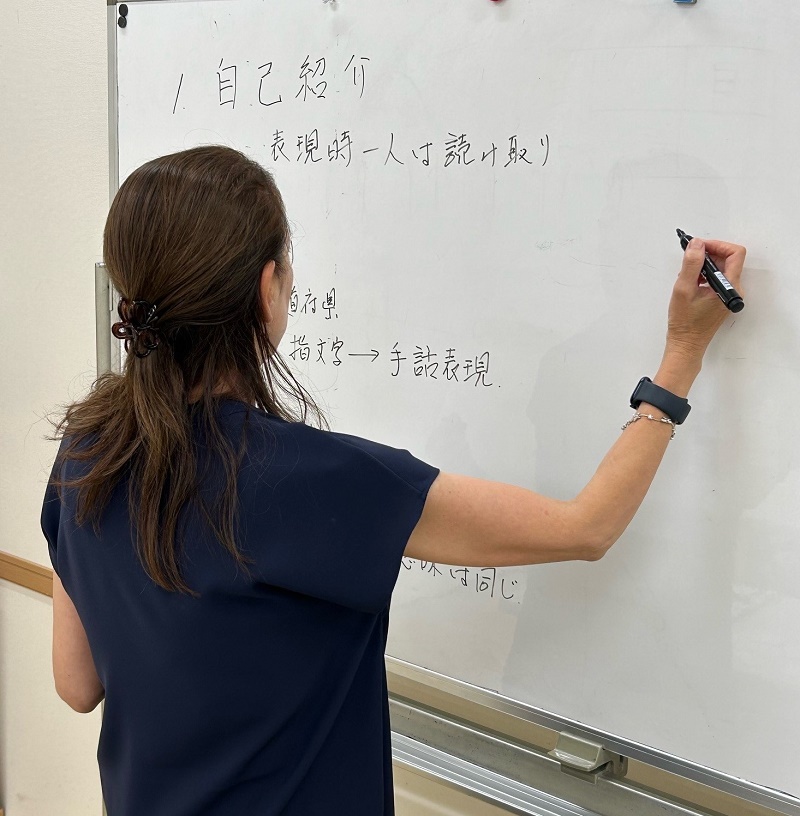 1. 自己紹介
表現時一人は読み取り
道府県
指文字→手話表現.
意味は同じ.